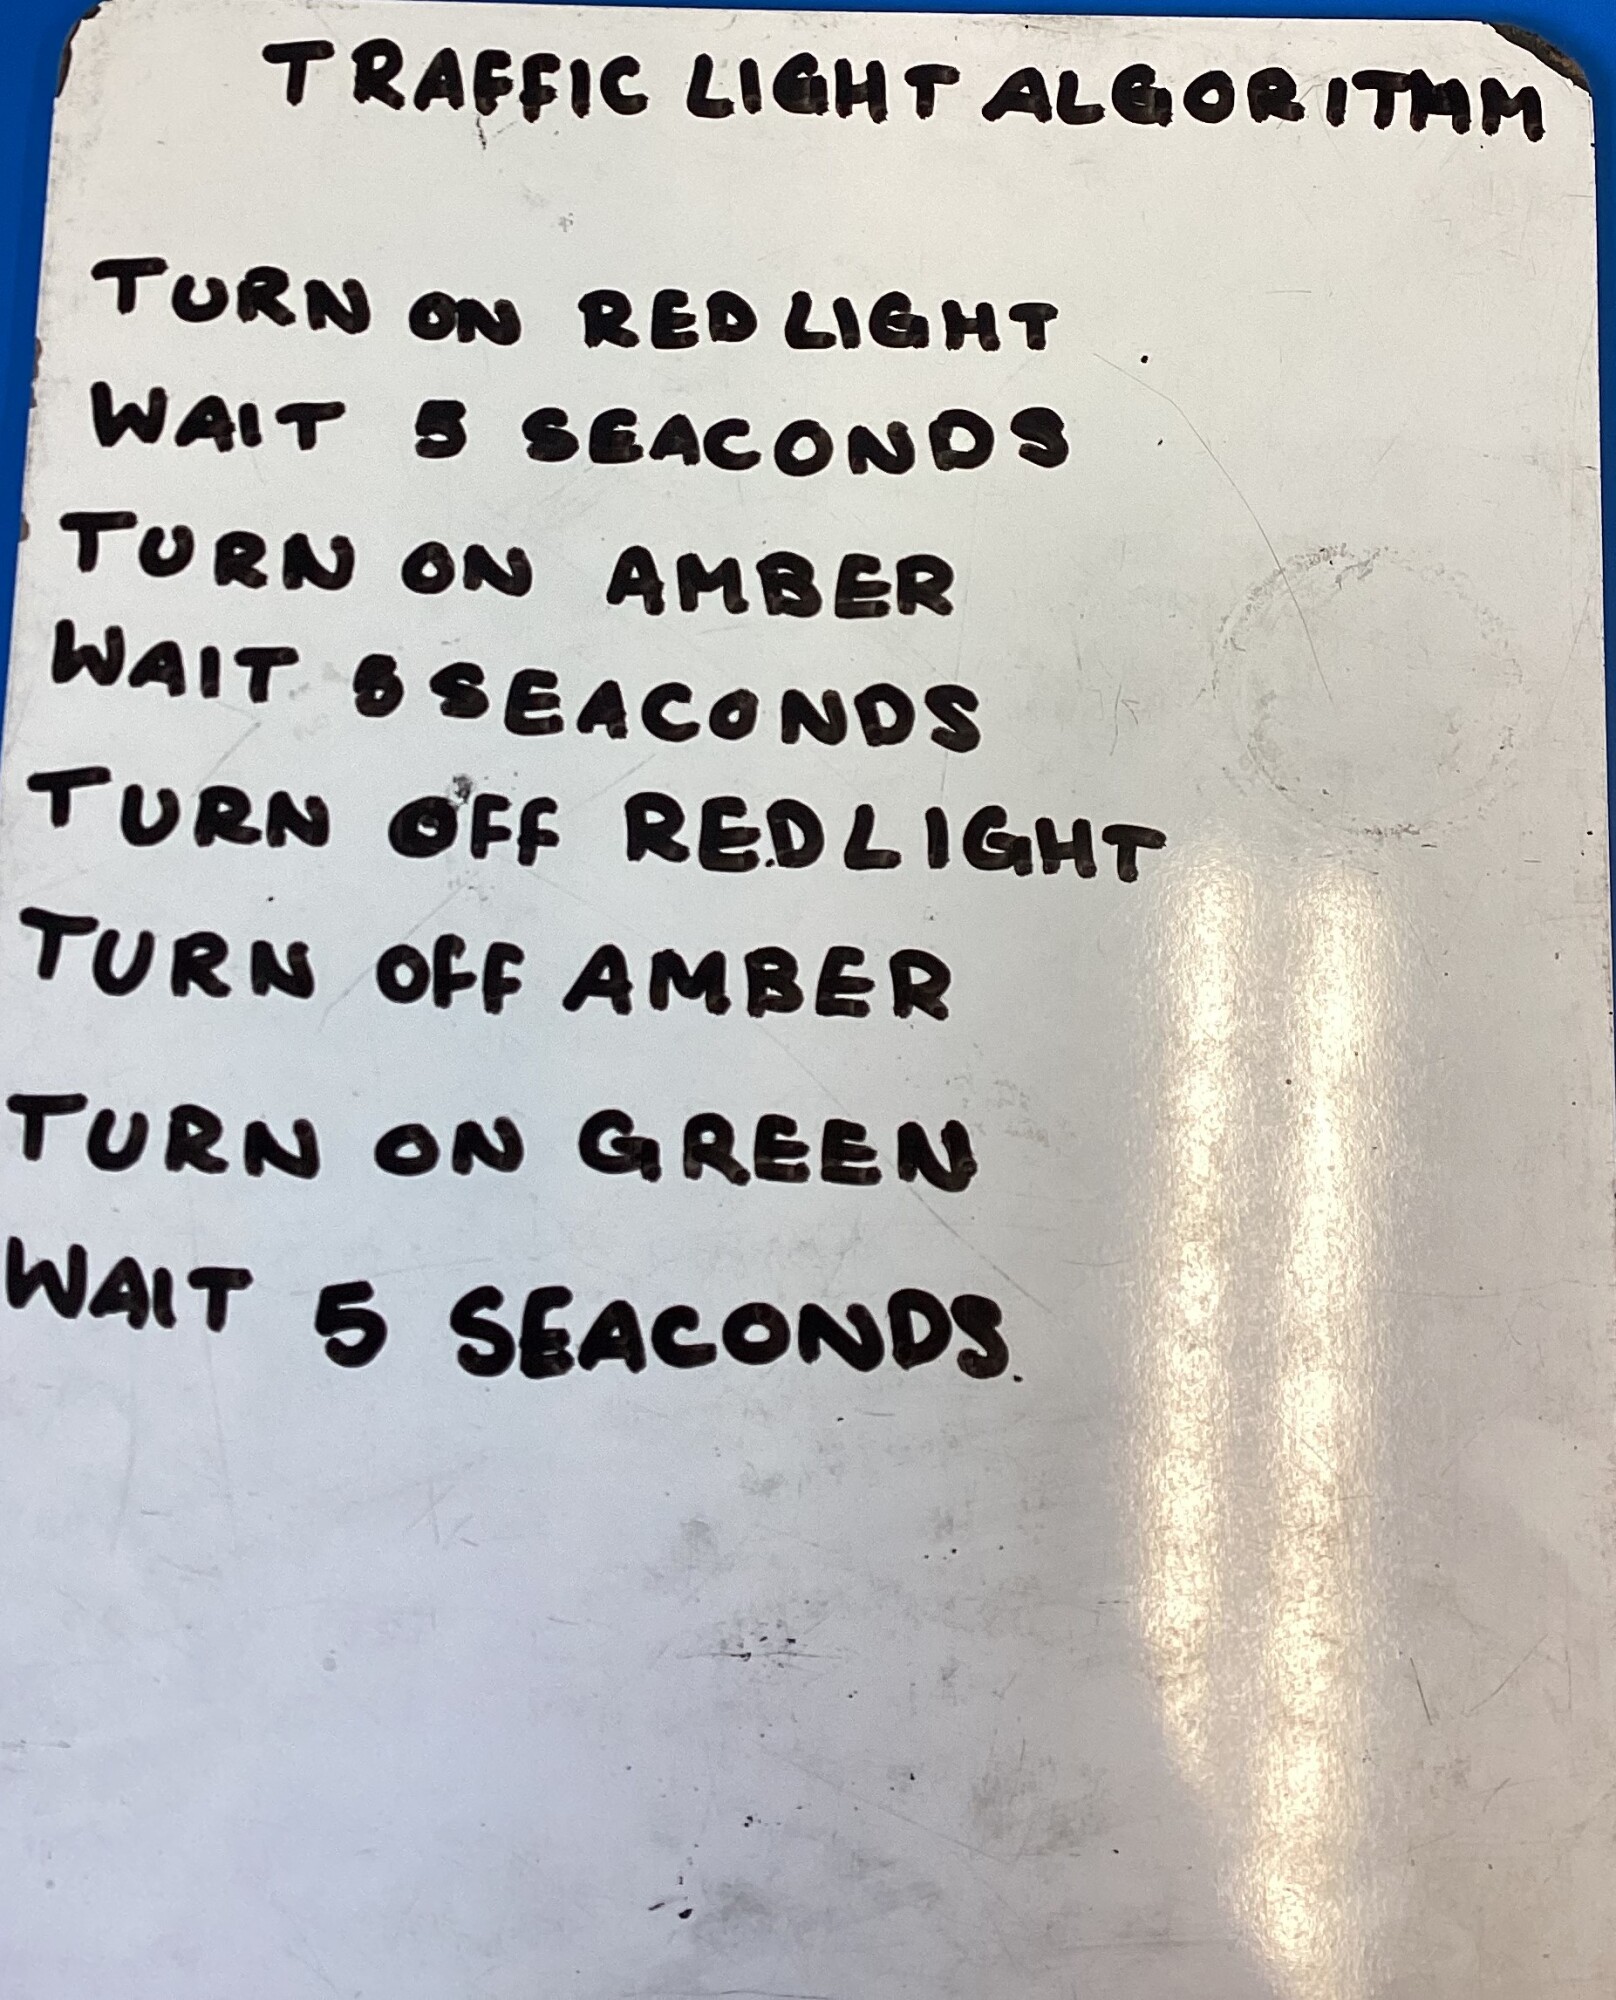 TRAFFIC LIGHT ALGORITHM
TURN ON RED LIGHT
WAIT 5 SEACONDS
TURN ON AMBER
WAIT 5 SEACONDS
TURN OFF RED LIGHT
TURN OFF AMBER
TURN ON GREEN
WAIT 5 SEACONDS.